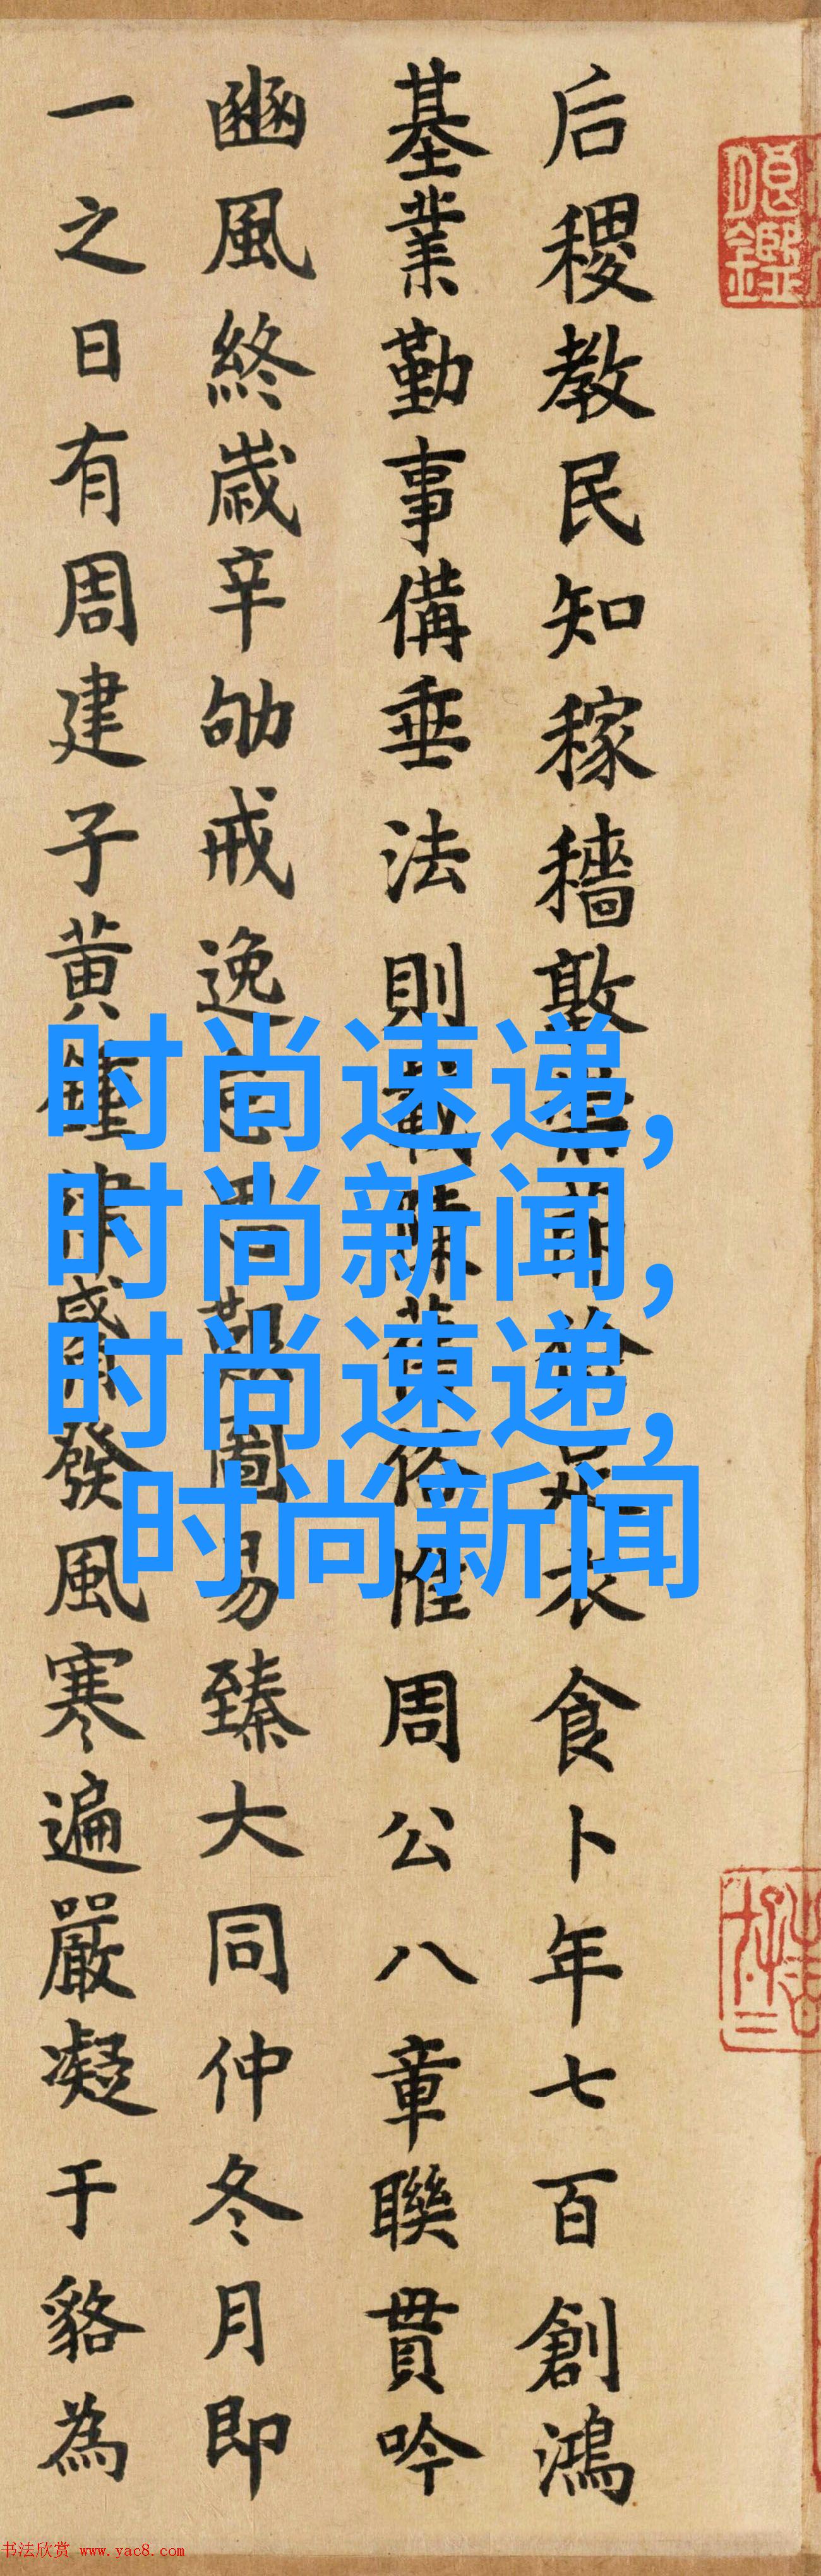 后稷教民知稼穡敦足衣食卜年七百創鴻
基業勤事備垂法則載陳舊俗惟周公八章聯貫吟
豳風終歲辛劬戒逸思艱圖易臻大同仲冬月即
一之日有周建子黃鐘律觱發風寒遍嚴凝于貉為
时尚速递,
时尚新闻,
时尚速递,
时尚新闻
书法欣赏 www.yac8.com